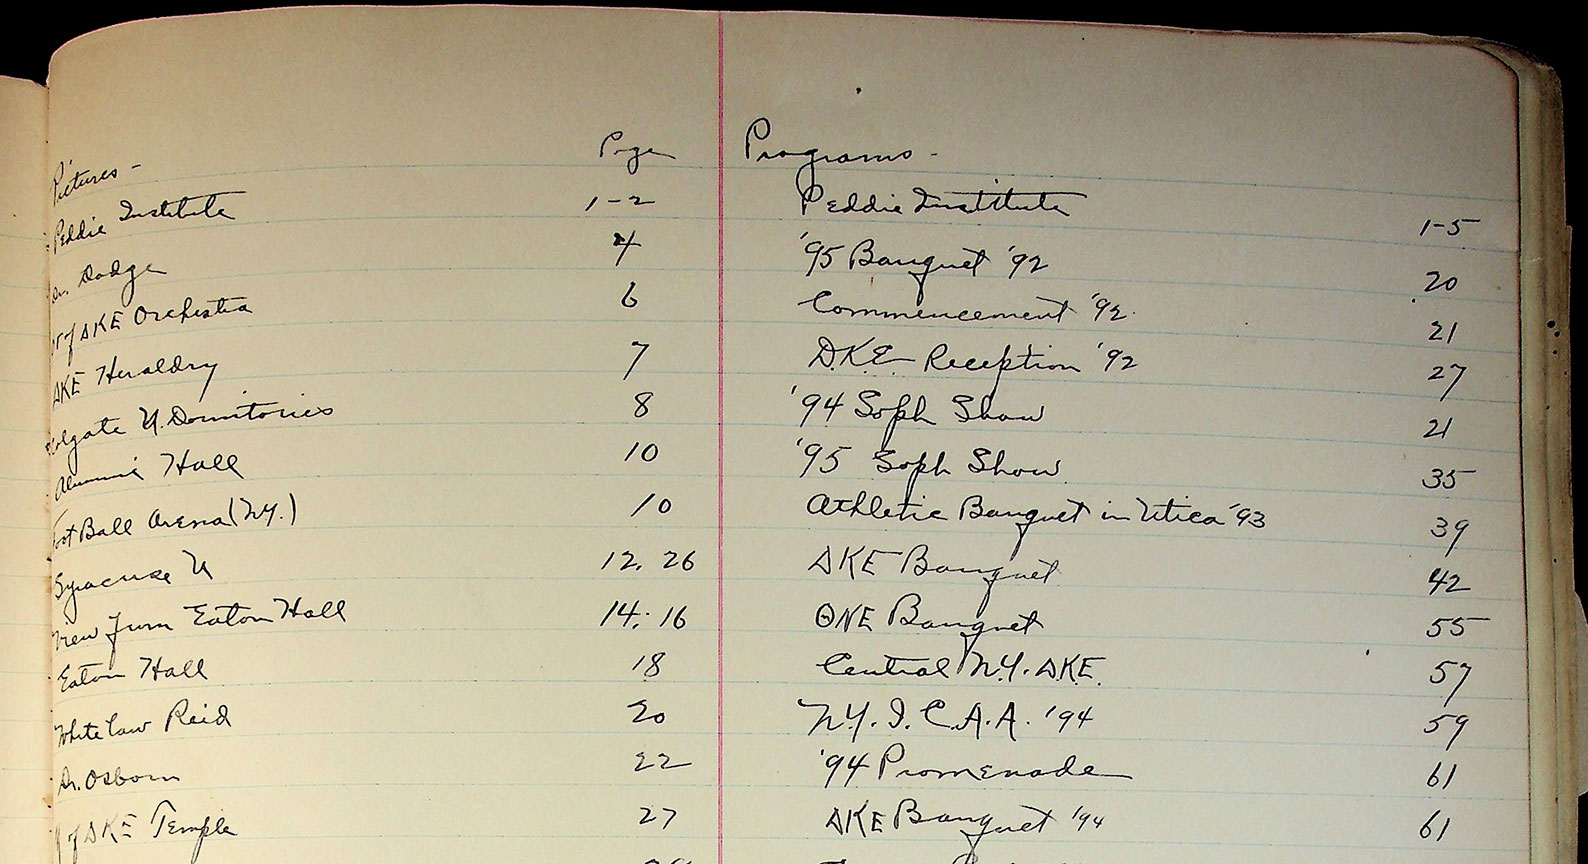 Pictures - Page
Peddie Institute 1-2
Dr. Dodge 4
of ΔKE Orchestra 6
ΔKE Heraldry 7
Colgate U. Dormitories 8
Alumni Hall 10
Foot Ball Arena (N.Y.) 10
Syracuse U 12. 26
View from Eaton Hall 14. 16
Eaton Hall 18
Whitelaw Reid 20
Dr. Osborn 22
of ΔKE Temple 27
Programs -
Peddie Institute 1-5
'95 Banquet '92 20
Commencement '92. 21
D.K.E. Reception '92 27
'94 Soph Show 21
'95 Soph Show 35
Athletic Banquet in Utica '93 39
ΔKE Banquet 42
ΘNE Banquet 55
Central N.Y. ΔKE. 57
N.Y. I. C. A. A. '94 59
'94 Promenade 61
ΔKE Banquet '94 61